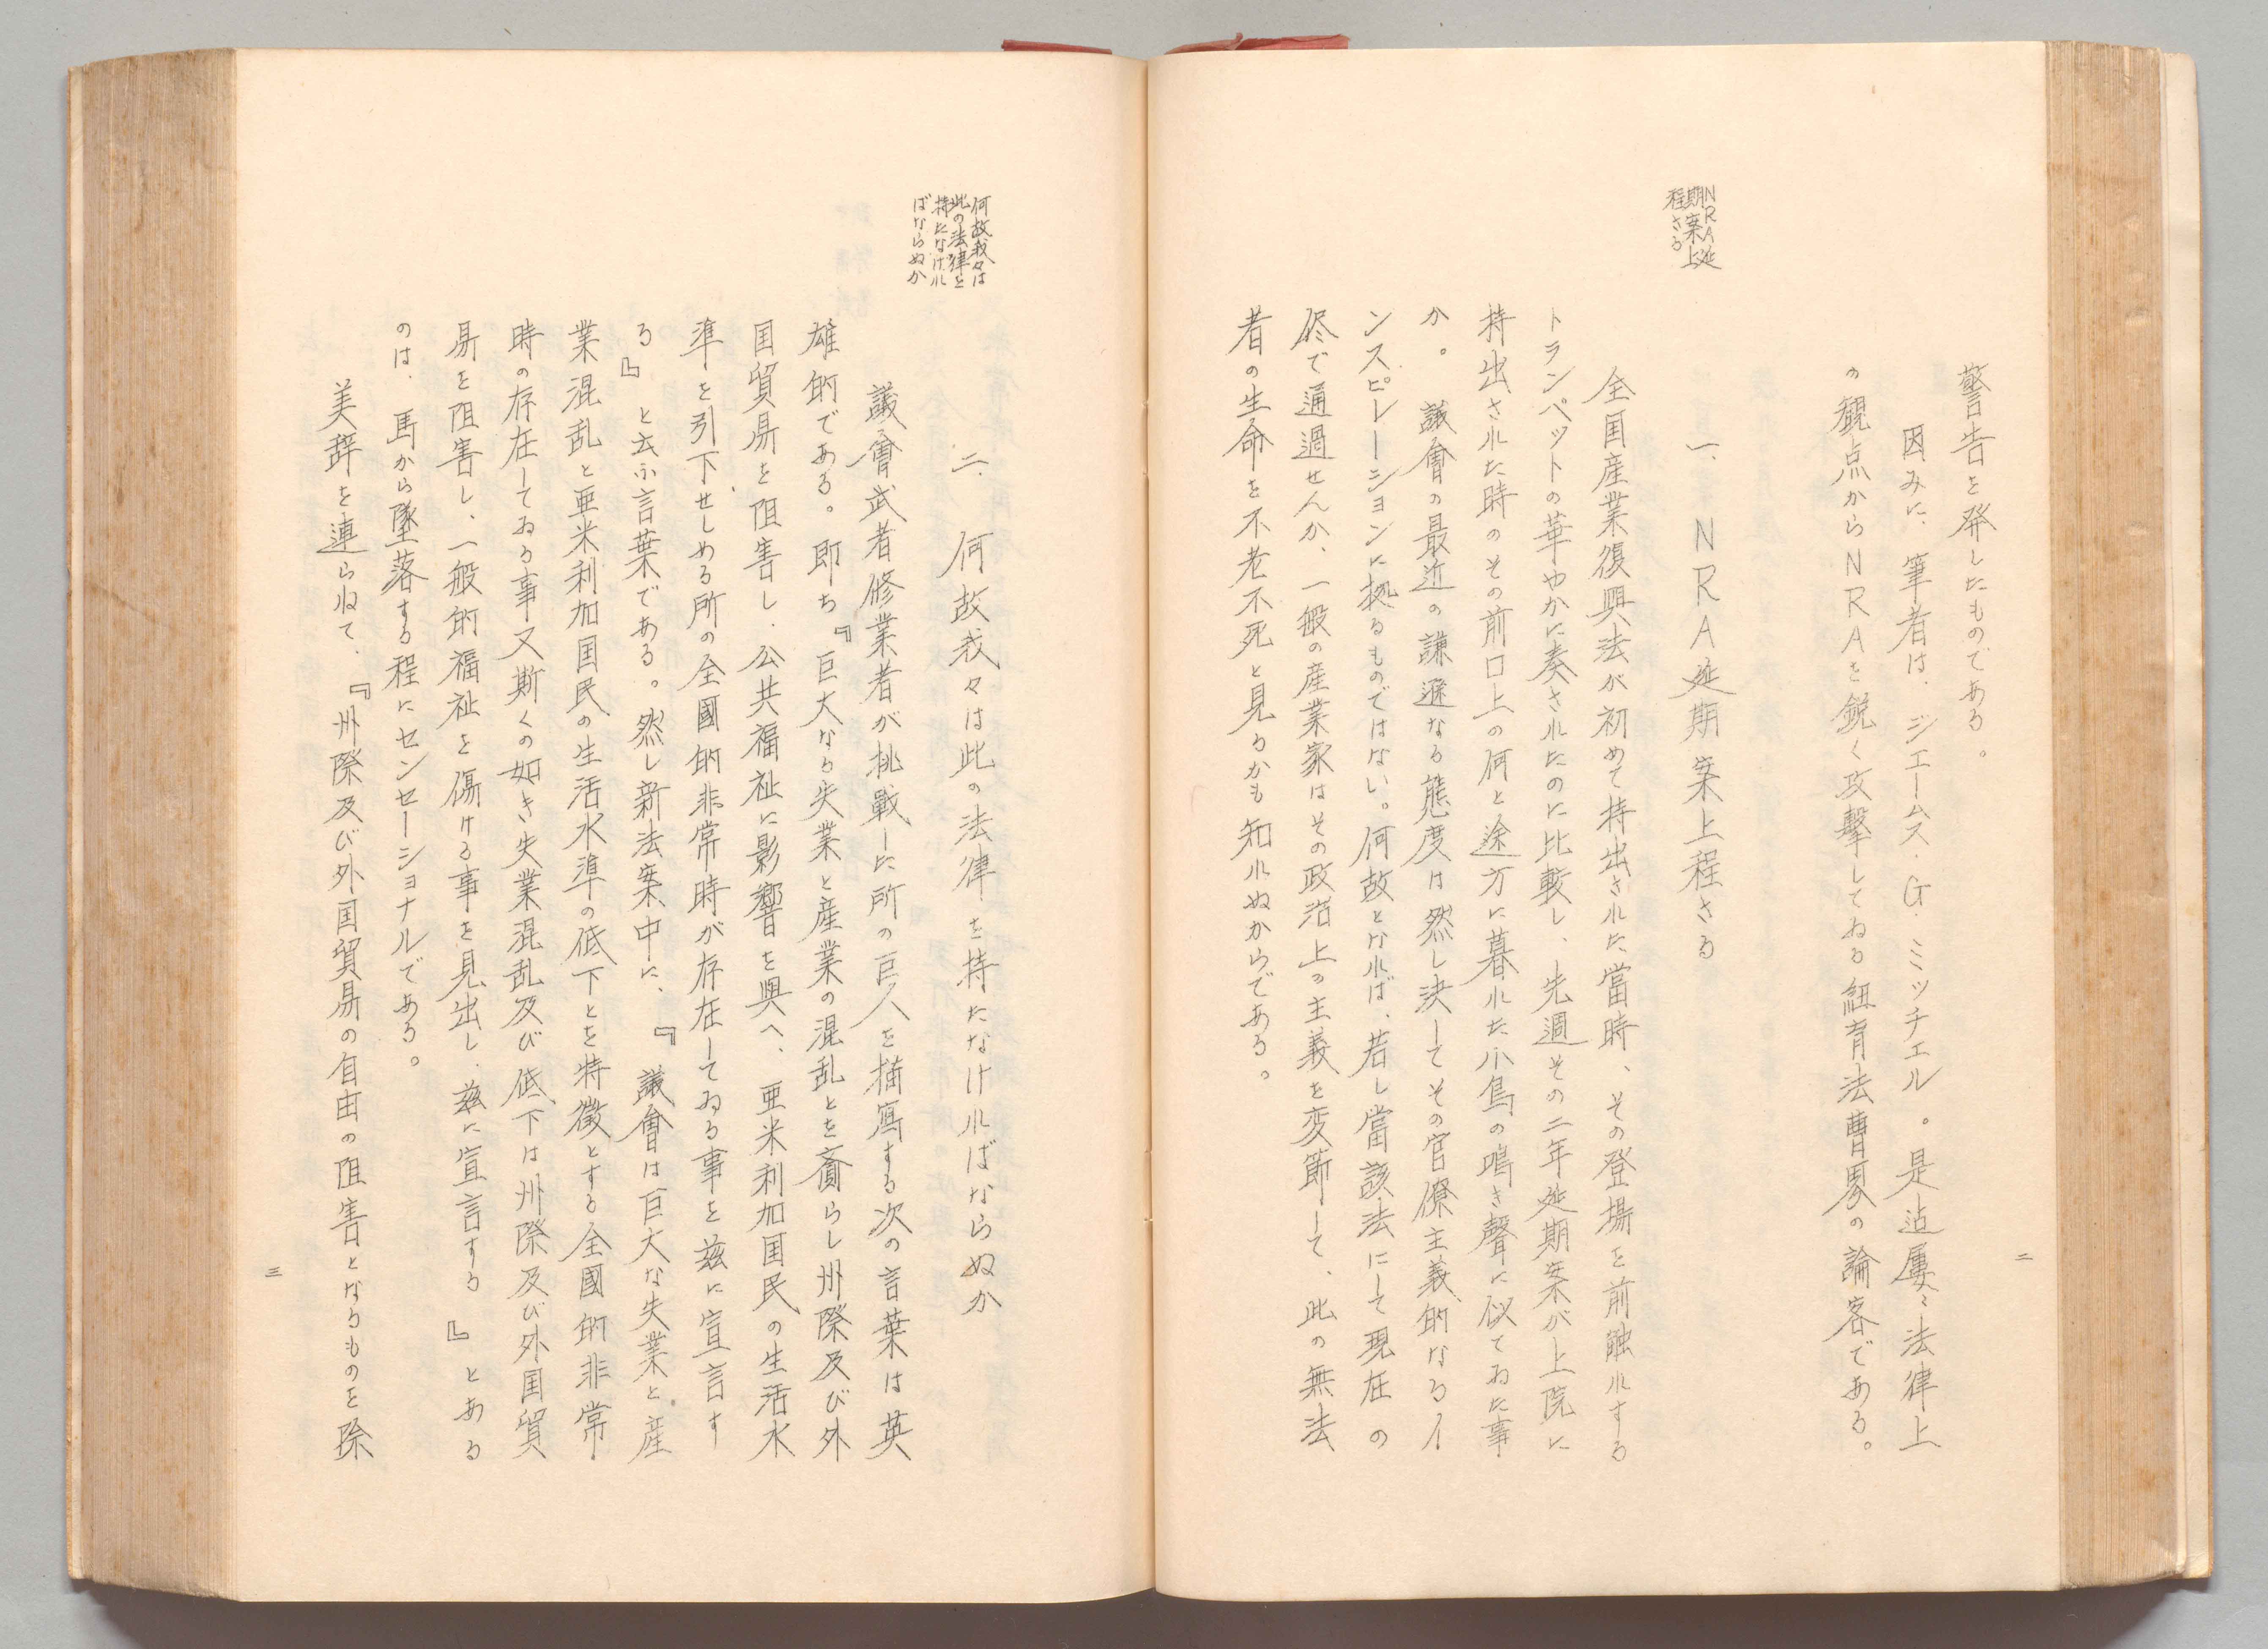 警告を発したものである。
因みに、筆者は、ジエームス.G.ミッチェル。是迠屢〻法律上
の観点からNRAを鋭く攻撃してゐる紐育法曹界の論客である。
二
NRA延
期案上
程さる
一、NRA延期案上程さる
全国産業復興法が初めて持出された當時、その登場を前触れする
トランペットの華やかに奏されたのに比較し、先週その二年延期案が上院に
持出された時のその前口上の何と途方に暮れた小鳥の鳴き聲に似てゐた事
か。議會の最近の謙遜なる態度は然し決してその官僚主義的なるイ
ンスピレーションに拠るものではない。何故となれば、若し當該法にして現在の
侭で通過せんか、一般の産業家はその政治上の主義を変節して、此の無法
者の生命を不老不死と見るかも知れぬからである。
何故我々は
此の法律を
持たなけれ
ばならぬか
二、何故我々は此の法律を持たなければならぬか
議會武者修業者が挑戰した所の巨人を描寫する次の言葉は英
雄的である。即ち『巨大なる失業と産業の混乱とを齎らし州際及び外
国貿易を阻害し、公共福祉に影響を與へ、亜米利加国民の生活水
準を引下せしめる所の全國的非常時が存在してゐる事を茲に宣言す
る』と云ふ言葉である。然し新法案中に、『議會は巨大な失業と産
業混乱と亜米利加国民の生活水準の低下とを特徴とする全國的非常
時の存在してゐる事又斯くの如き失業混乱及び低下は州際及び外国貿
易を阻害し、一般的福祉を傷ける事を見出し、茲に宣言する』とある
のは、馬から墜落する程にセンセーショナルである。
美辞を連らねて、『州際及び外国貿易の自由の阻害となるものを除
三